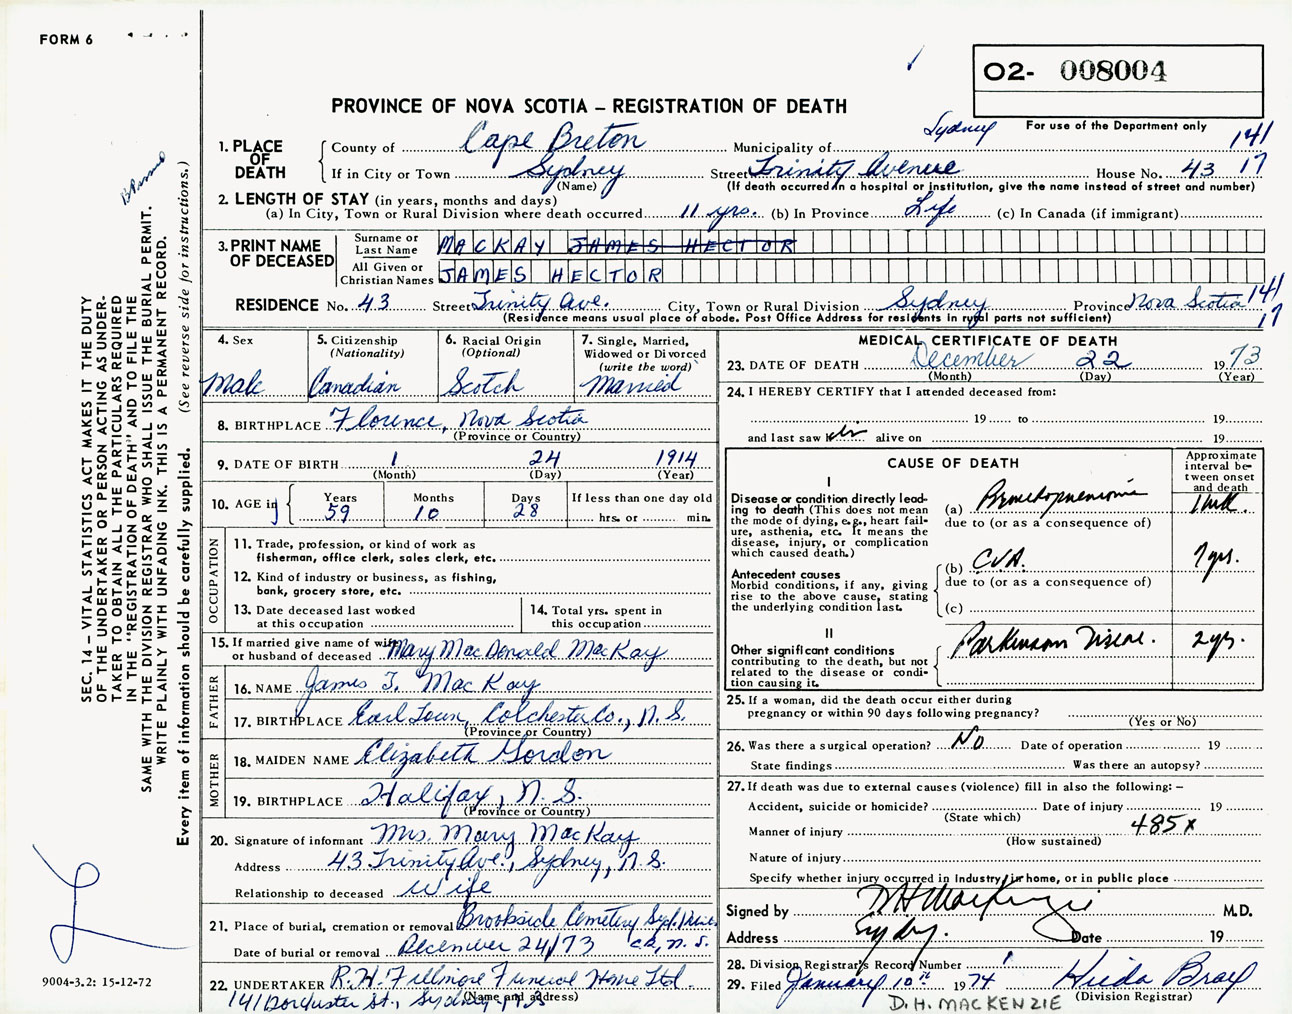 FORM 6
02- 008004
For use of the Department only
PROVINCE OF NOVA SCOTIA – REGISTRATION OF DEATH
1. PLACE OF DEATH
County of Cape Breton Municipality of Sydney 141
If in City or Town Sydney Street Trinity Avenue House No. 43 17
(Name) (If death occurred in a hospital or institution, give the name instead of street and number)
2. LENGTH OF STAY (in years, months and days)
(a) In City, Town or Rural Division where death occurred 11 yrs. (b) In Province Life (c) In Canada (if immigrant)
3. PRINT NAME OF DECEASED
Surname or Last Name MACKAY JAMES HECTOR
All Given or Christian Names JAMES HECTOR
RESIDENCE No. 43 Street Trinity Ave. City, Town or Rural Division Sydney Province Nova Scotia 141
(Residence means usual place of abode. Post Office Address for residents in rural parts not sufficient) 17
4. Sex Male
5. Citizenship (Nationality) Canadian
6. Racial Origin (Optional) Scotch
7. Single, Married, Widowed or Divorced (write the word) Married
8. BIRTHPLACE Florence, Nova Scotia
(Province or Country)
9. DATE OF BIRTH 1 24 1914
(Month) (Day) (Year)
10. AGE in Years 59 Months 10 Days 28 If less than one day old
hrs. or min.
OCCUPATION
11. Trade, profession, or kind of work as fisherman, office clerk, sales clerk, etc.
12. Kind of industry or business, as fishing, bank, grocery store, etc.
13. Date deceased last worked at this occupation
14. Total yrs. spent in this occupation
15. If married give name of wife or husband of deceased Mary MacDonald MacKay
FATHER
16. NAME James T. MacKay
17. BIRTHPLACE Earl Town, Colchester Co., N.S.
(Province or Country)
MOTHER
18. MAIDEN NAME Elizabeth Gordon
19. BIRTHPLACE Halifax, N.S.
(Province or Country)
20. Signature of informant Mrs. Mary MacKay
Address 43 Trinity Ave., Sydney, N.S.
Relationship to deceased Wife
21. Place of burial, cremation or removal Brookside Cemetery Syd.
Date of burial or removal December 24/73 N.S.
22. UNDERTAKER R.H. Fillmore Funeral Home Ltd.
141 Dorchester St., Sydney N.S.
(Name and address)
MEDICAL CERTIFICATE OF DEATH
23. DATE OF DEATH December 22 1973
(Month) (Day) (Year)
24. I HEREBY CERTIFY that I attended deceased from:
19 to 19
and last saw alive on 19
CAUSE OF DEATH
Approximate interval between onset and death
I
Disease or condition directly leading to death (This does not mean the mode of dying, e.g., heart failure, asthenia, etc. It means the disease, injury, or complication which caused death.)
(a) Bronchopneumonia 1 wk.
due to (or as a consequence of)
Antecedent causes
Morbid conditions, if any, giving rise to the above cause, stating the underlying condition last.
(b) C.V.A. 7 yrs.
due to (or as a consequence of)
(c)
II
Other significant conditions contributing to the death, but not related to the disease or condition causing it.
Parkinsons Disease. 2 yrs.
25. If a woman, did the death occur either during pregnancy or within 90 days following pregnancy?
(Yes or No)
26. Was there a surgical operation? No Date of operation 19
State findings Was there an autopsy?
27. If death was due to external causes (violence) fill in also the following: –
Accident, suicide or homicide? Date of injury 19
(State which)
Manner of injury 485X
(How sustained)
Nature of injury
Specify whether injury occurred in Industry, in home, or in public place
Signed by MacKenzie M.D.
Address Sydney. Date 19
28. Division Registrar's Record Number 1
29. Filed January 10th 1974 Hilda Bray
(Division Registrar)
D.H. MACKENZIE
SEC. 14 – VITAL STATISTICS ACT MAKES IT THE DUTY
OF THE UNDERTAKER OR PERSON ACTING AS UNDER-
TAKER TO OBTAIN ALL THE PARTICULARS REQUIRED
IN THE "REGISTRATION OF DEATH" AND TO FILE THE
SAME WITH THE DIVISION REGISTRAR WHO SHALL ISSUE THE BURIAL PERMIT.
WRITE PLAINLY WITH UNFADING INK. THIS IS A PERMANENT RECORD.
Every item of information should be carefully supplied. (See reverse side for instructions.)
9004-3.2: 15-12-72